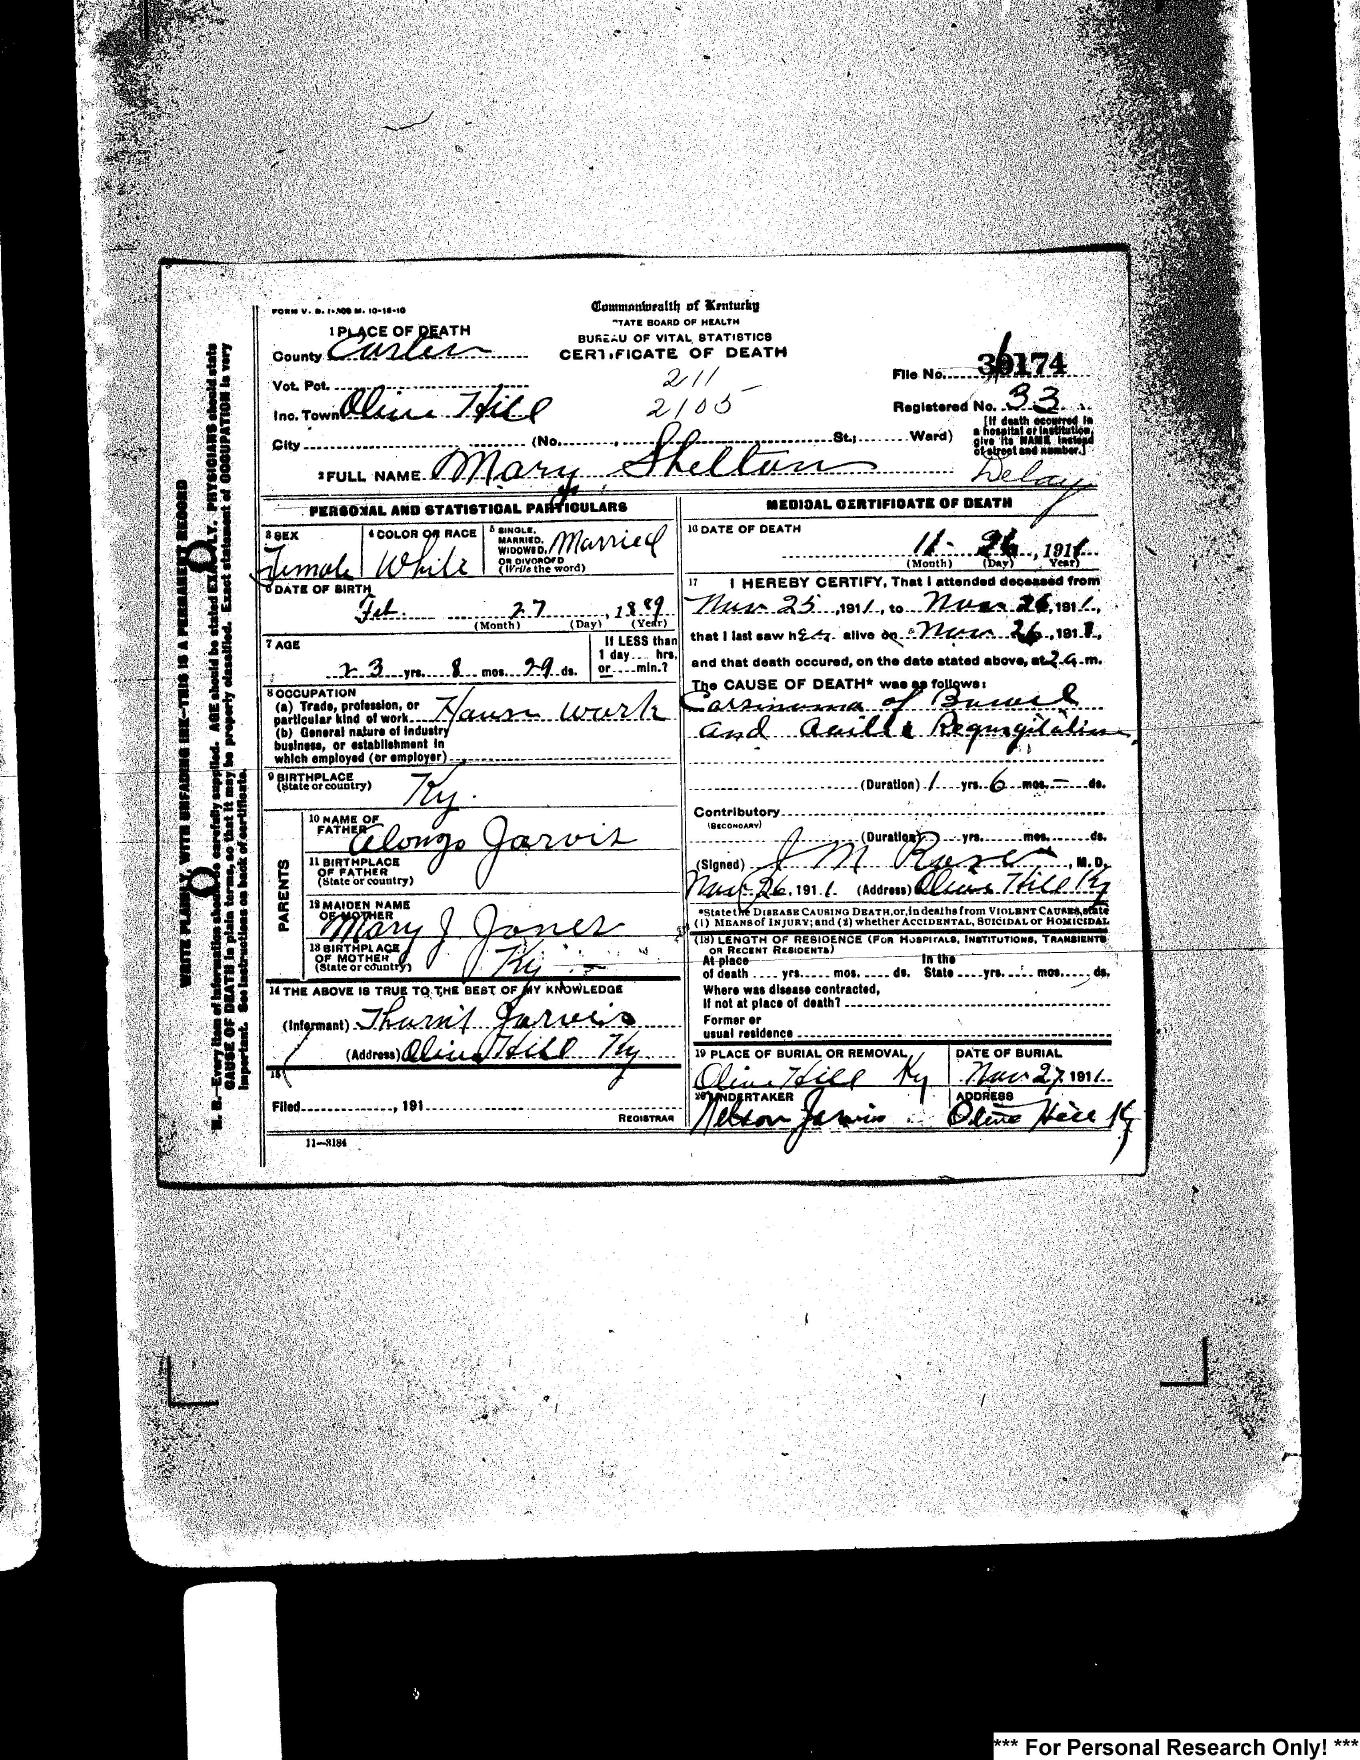 FORM V. S. 1-
Commonwealth of Kentucky
STATE BOARD OF HEALTH
BUREAU OF VITAL STATISTICS
CERTIFICATE OF DEATH
1 PLACE OF DEATH
County Carter
Vot. Pct.
Inc. Town Olive Hill
City (No. , St.; Ward)
211
2105
File No. 30174
Registered No. 33
[If death occurred in
a hospital or institution,
give its NAME instead
of street and number.]
2 FULL NAME Mary Shelton
Delay
PERSONAL AND STATISTICAL PARTICULARS
3 SEX
Female
4 COLOR OR RACE
White
5 SINGLE,
MARRIED,
WIDOWED,
OR DIVORCED
(Write the word)
Married
6 DATE OF BIRTH
Feb. 27, 1889
(Month) (Day) (Year)
7 AGE
23 yrs. 8 mos. 29 ds.
If LESS than
1 day.... hrs.
or....min.?
8 OCCUPATION
(a) Trade, profession, or
particular kind of work House work
(b) General nature of industry
business, or establishment in
which employed (or employer)
9 BIRTHPLACE
(State or country)
Ky.
PARENTS
10 NAME OF
FATHER
Alonzo Jarvis
11 BIRTHPLACE
OF FATHER
(State or country)
12 MAIDEN NAME
OF MOTHER
Mary J Jones
13 BIRTHPLACE
OF MOTHER
(State or country)
Ky
14 THE ABOVE IS TRUE TO THE BEST OF MY KNOWLEDGE
(Informant) Jarvis
(Address) Olive Hill Ky
15
Filed , 191
REGISTRAR
11-3184
MEDICAL CERTIFICATE OF DEATH
16 DATE OF DEATH
11- 26, 1911
(Month) (Day) (Year)
17 I HEREBY CERTIFY, That I attended deceased from
Nov 25, 1911, to Nov 26, 1911,
that I last saw her alive on Nov 26, 1911,
and that death occured, on the date stated above, at 2 a m.
The CAUSE OF DEATH* was as follows:
Carsinoma of Bowel
and Regurgitation
(Duration) 1 yrs. 6 mos. - ds.
Contributory
(SECONDARY)
(Duration) yrs. mos. ds.
(Signed) J M Rose, M. D.
Nov 26, 1911 (Address) Olive Hill Ky
*State the DISEASE CAUSING DEATH, or, in deaths from VIOLENT CAUSES, state
(1) MEANS of INJURY; and (2) whether ACCIDENTAL, SUICIDAL or HOMICIDAL
(18) LENGTH OF RESIDENCE (FOR HOSPITALS, INSTITUTIONS, TRANSIENTS
OR RECENT RESIDENTS)
At place In the
of death .... yrs..... mos. .... ds. State ....yrs.... mos.....ds.
Where was disease contracted,
If not at place of death?
Former or
usual residence
19 PLACE OF BURIAL OR REMOVAL
Olive Hill Ky
DATE OF BURIAL
Nov 27 1911
20 UNDERTAKER
Nelson Jarvis
ADDRESS
Olive Hill Ky
WRITE PLAINLY, WITH UNFADING INK—THIS IS A PERMANENT RECORD
N. B.—Every item of information should be carefully supplied. AGE should be stated EXACTLY. PHYSICIANS should state
CAUSE OF DEATH in plain terms, so that it may be properly classified. Exact statement of OCCUPATION is very
important. See instructions on back of certificate.
*** For Personal Research Only! ***